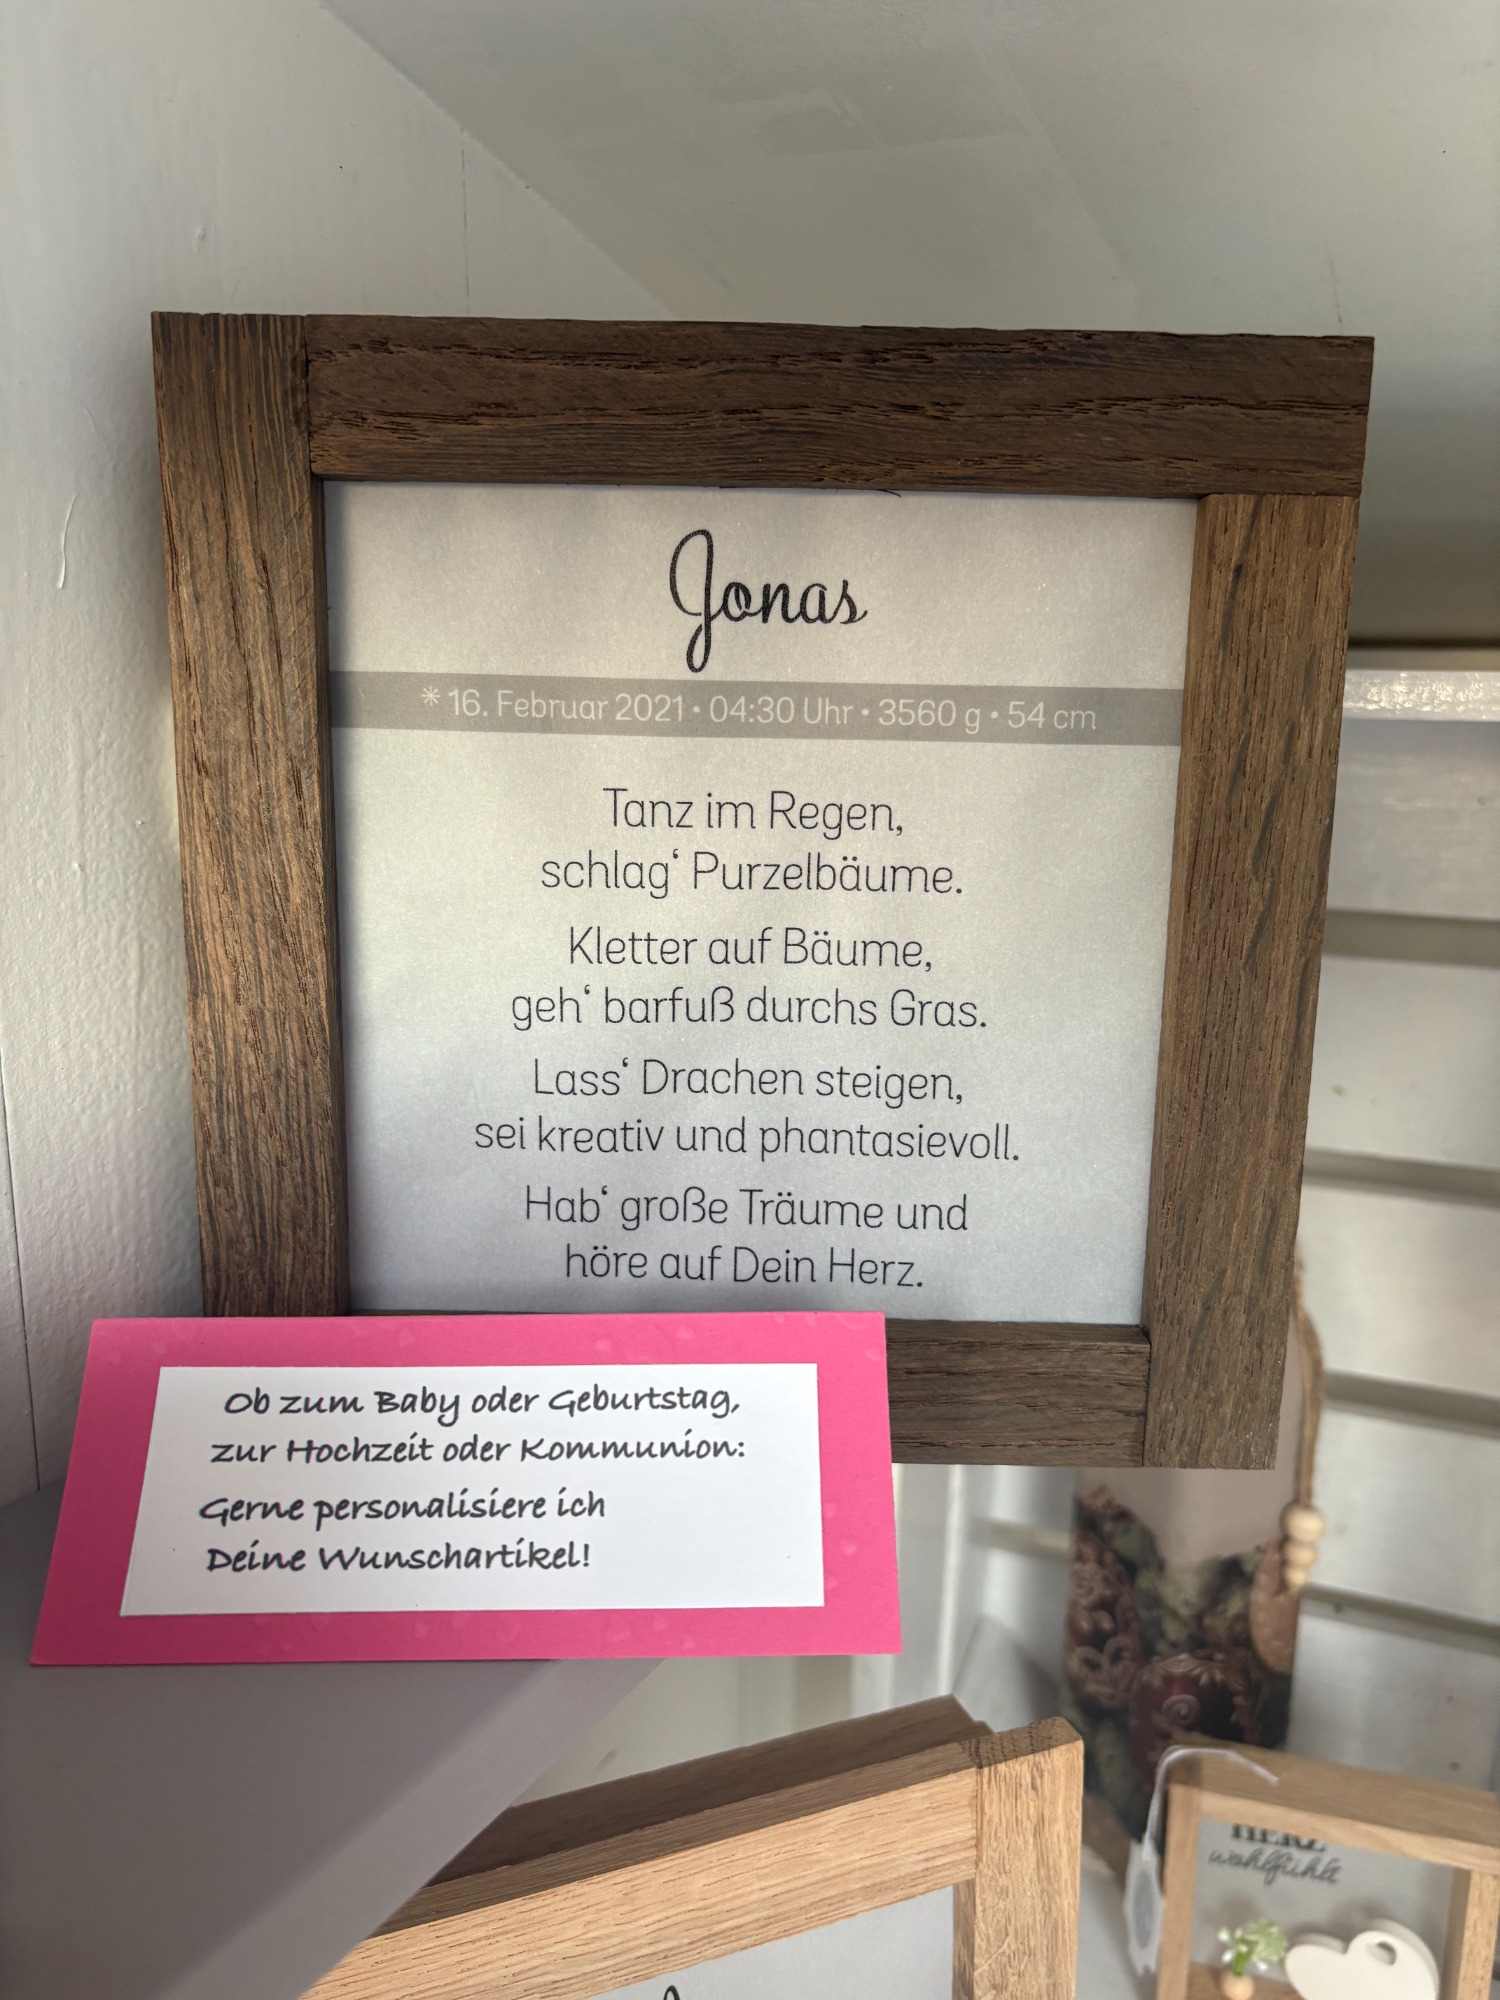 Jonas
* 16. Februar 2021 • 04:30 Uhr • 3560 g • 54 cm
Tanz im Regen,
schlag‘ Purzelbäume.
Kletter auf Bäume,
geh‘ barfuß durchs Gras.
Lass‘ Drachen steigen,
sei kreativ und phantasievoll.
Hab‘ große Träume und
höre auf Dein Herz.
Ob zum Baby oder Geburtstag,
zur Hochzeit oder Kommunion:
Gerne personalisiere ich
Deine Wunschartikel!
HERZ
wohlfühlt